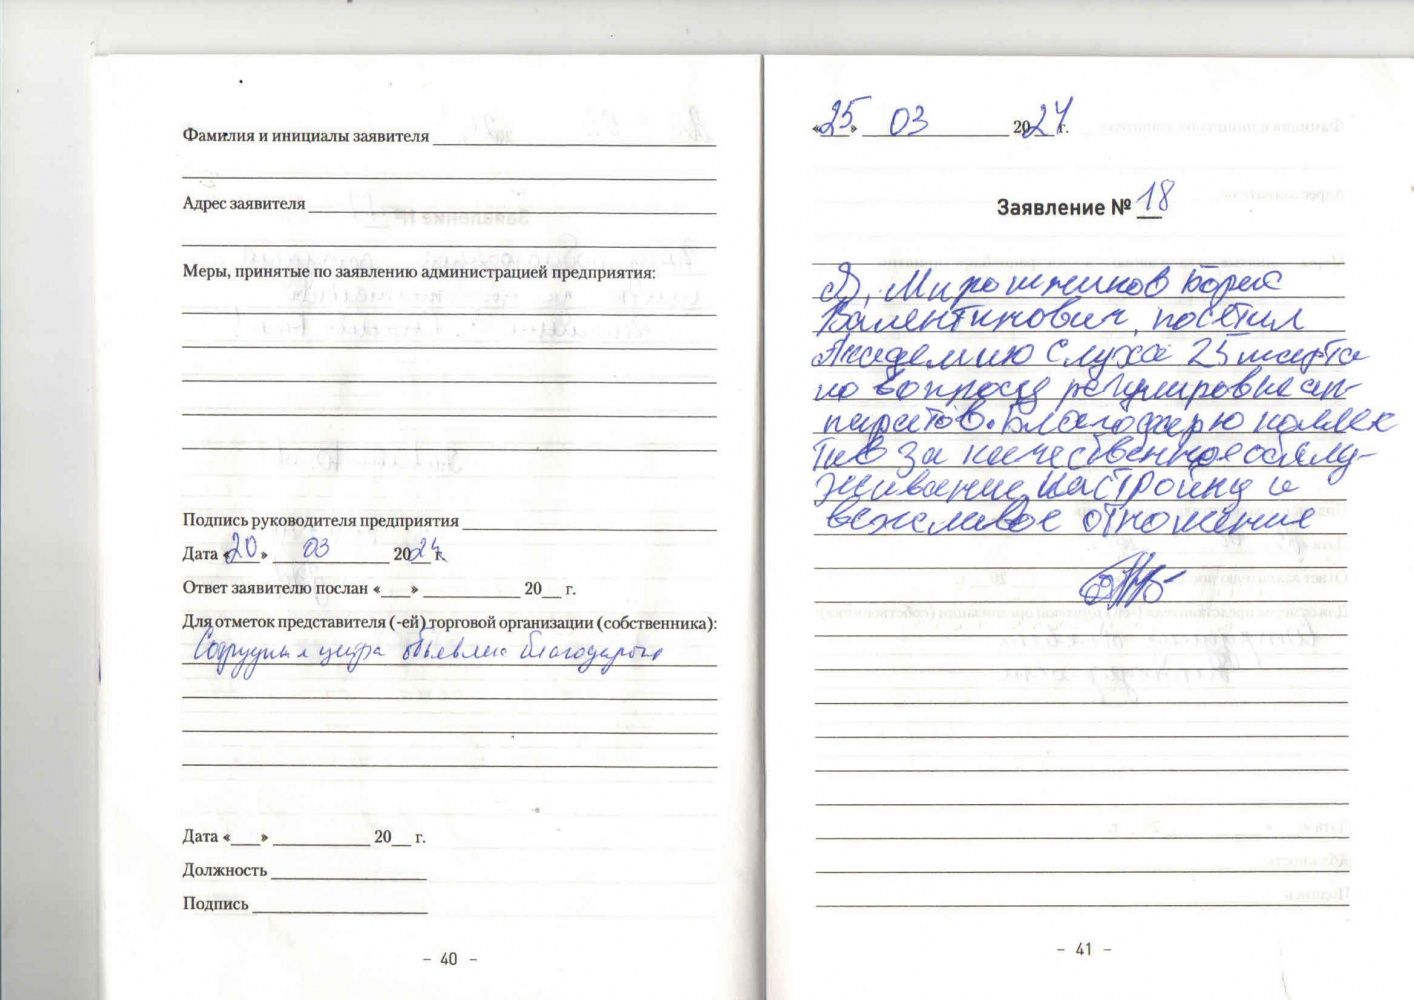 Фамилия и инициалы заявителя
Адрес заявителя
Меры, принятые по заявлению администрацией предприятия:
Подпись руководителя предприятия
Дата «20» 03 2024 г.
Ответ заявителю послан «___» ___ 20__ г.
Для отметок представителя (-ей) торговой организации (собственника):
объявлена благодарность
Дата «___» ___ 20__ г.
Должность
Подпись
– 40 –
«25» 03 2024 г.
Заявление № 18
Я, Мирошников Борис
Валентинович, посетил
Академию Слуха 25 марта
по вопросу регулировке ап-
паратов. Благодарю коллек
тив за качественное обслу-
живание, настройку и
вежливое отношение
– 41 –